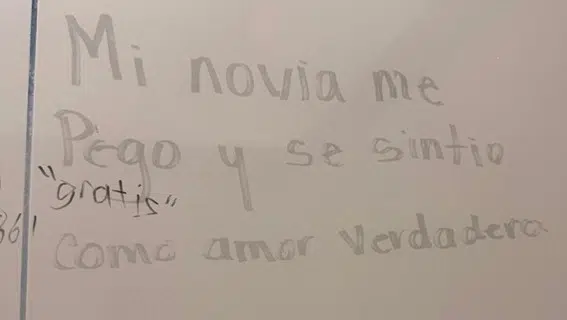 Mi novia me
Pego y se sintio
"gratis"
como amor verdadero